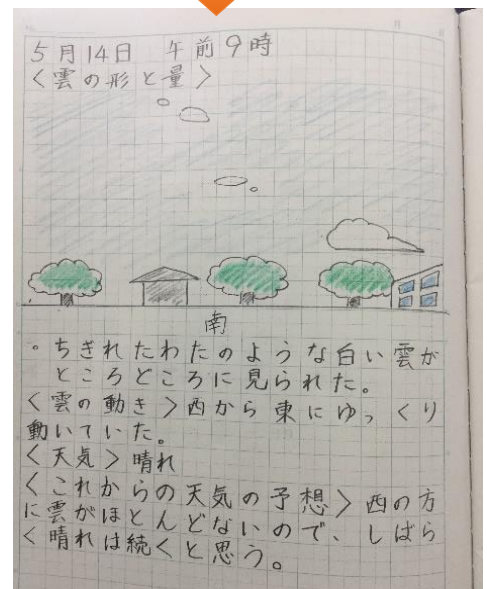 5月14日 午前9時
<雲の形と量>
南
。ちぎれたわたのような白い雲が
ところどころに見られた。
<雲の動き>西から東にゆっくり
動いていた。
<天気>晴れ
<これからの天気の予想>西の方
に雲がほとんどないので、しばら
く晴れは続くと思う。